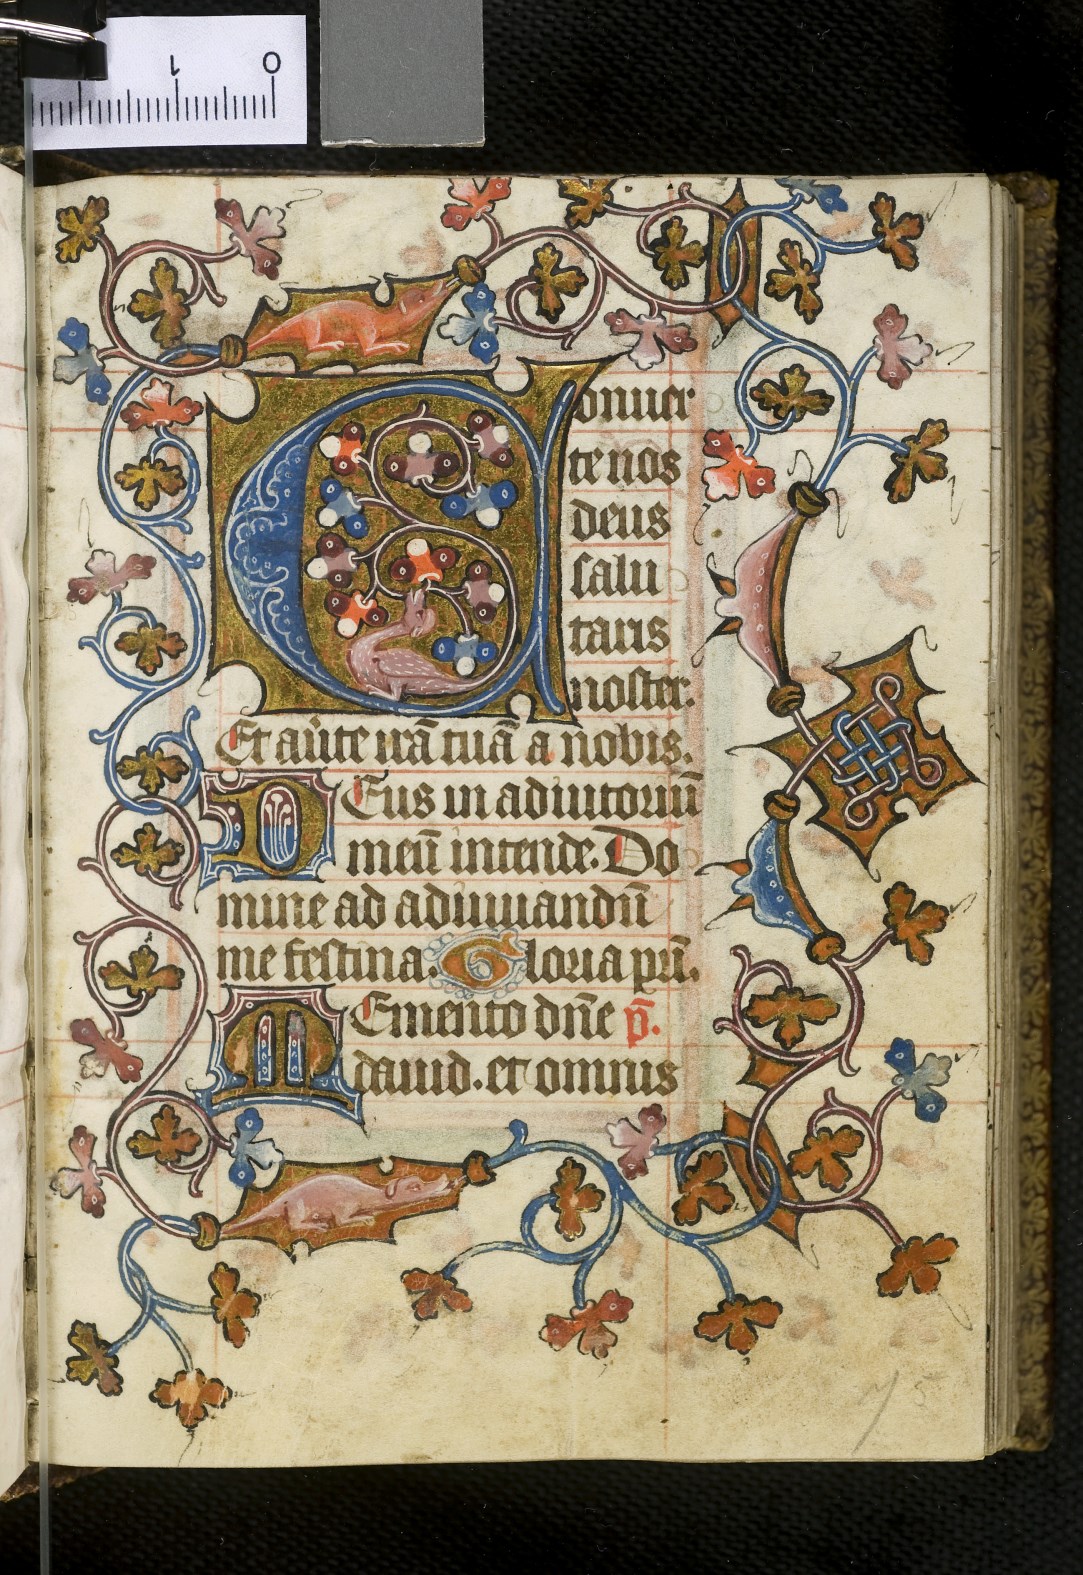 1 0
Conuer
te nos
deus
salu
taris
noster.
Et au̾te irā tuā a nobis.
Deus in adiutoriū
meū intende. Do
mine ad adiuuandū
me festina. Gloria pr̄i.
Memento dn̄e p̄.
dauid. et omnis
75